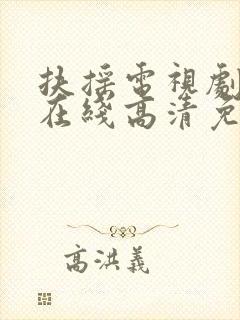 扶摇電視劇
在綫高清免
高洪義